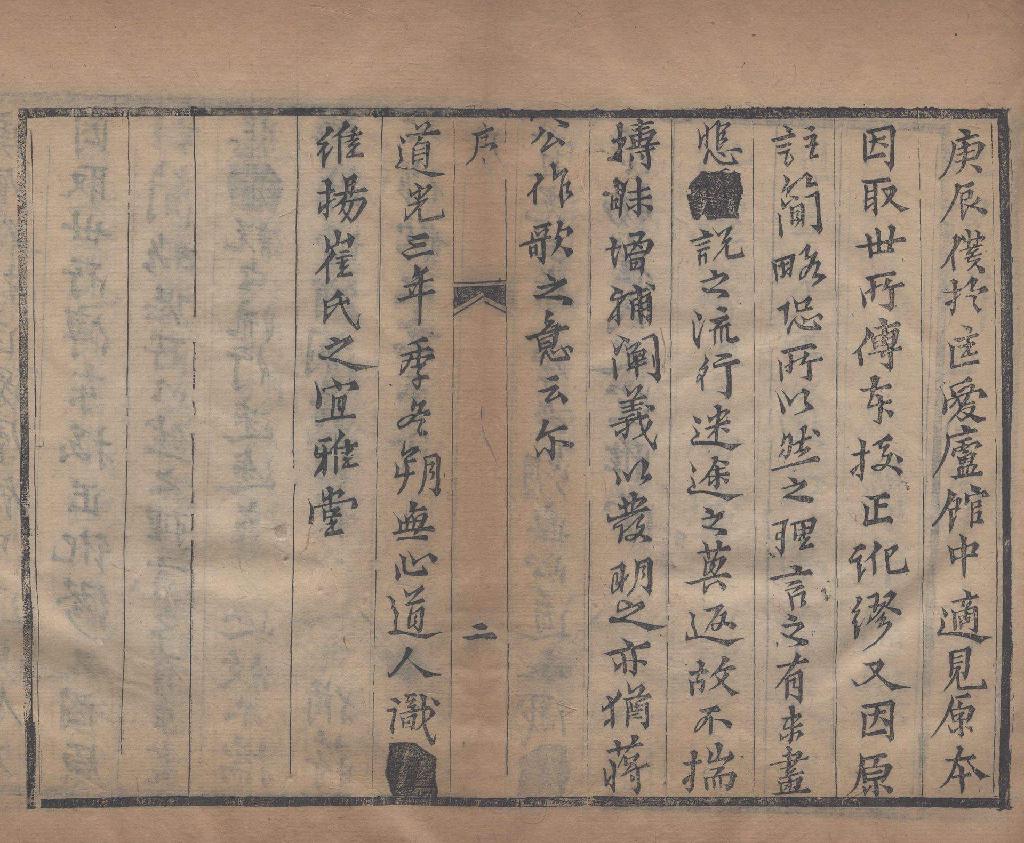 庚辰僕於匡愛廬館中適見原本
因取世所傳本挍正紕繆又因原
註簡略恐所以然之理言之有未盡
説之流行迷途之莫返故不揣
擣昧增補闡義以發明之亦猶蔣
公作歌之意云尔
序 二
道光三年季冬朔無心道人識
維揚崔氏之宜雅堂